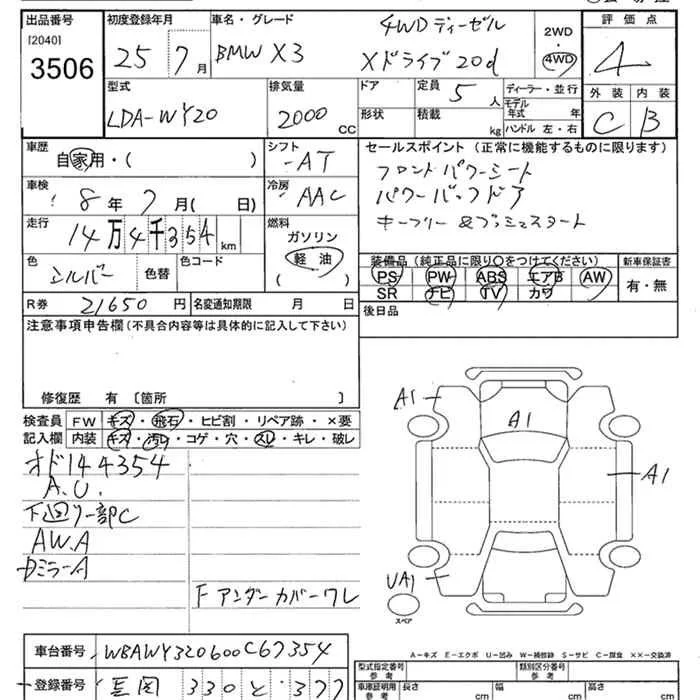 出品番号 初度登録年月 車名・グレード 4WD ディーゼル 2WD 評価点
[2040] 25 7月 BMW X3 Xドライブ20d 4WD 4
3506
型式 排気量 ドア 定員 ディーラー・並行 外装 内装
LDA-WY20 2000 CC 5人 モデル年式 年 C B
形状 積載 kg ハンドル 左・右
車歴 シフト セールスポイント(正常に機能するものに限ります)
自家用・( ) AT フロントパワーシート
車検 冷房 パワーバックドア
8年 7月( 日) AAC キーフリー&プッシュスタート
走行 燃料
14万4千354km ガソリン
軽油
( )
色 色替 色コード
シルバー
装備品(純正品に限り○をつけてください) 新車保証書
PS PW ABS エアB AW 有・無
SR ナビ TV カワ
R券 21650円 名変通知期限 月 日
後日品
注意事項申告欄(不具合内容等は具体的に記入して下さい)
修復歴 有 〔箇所 〕
検査員 FW キズ・飛石・ヒビ割・リペア跡・×要
記入欄 内装 キズ・汚レ・コゲ・穴・スレ・キレ・破レ
オド144354
A.U.
下廻り一部C
AW.A
Dミラー A
F アンダーカバーワレ
A1
A1
A1
UA1
スペア
A-キズ E-エクボ U-凹み W-補修跡 S-サビ C-腐食 ××-交換済
車台番号 WBAWY320600C67354
型式指定番号 参考 類別区分番号 参考
登録番号 330 と 377
車庫証明用 参考 長さ cm 幅 cm 高さ cm